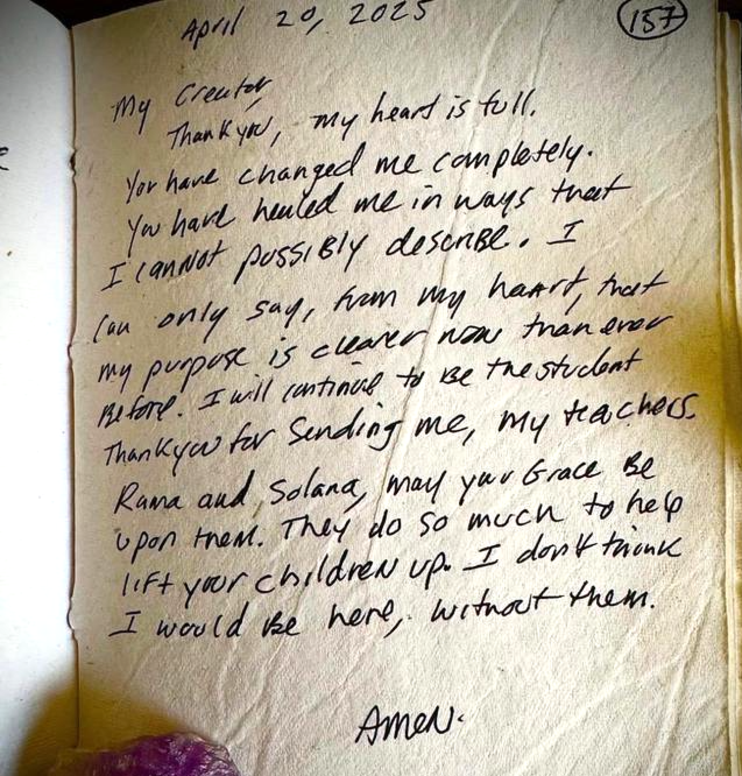 April 20, 2025
157
My Creator,
Thank you, my heart is full.
You have changed me completely.
You have healed me in ways that
I cannot possibly describe. I
can only say, from my heart, that
my purpose is clearer now than ever
before. I will continue to be the student
Thank you for sending me, my teachers.
Rama and Solana, may your Grace be
upon them. They do so much to help
lift your children up. I don't think
I would be here, without them.
Amen.